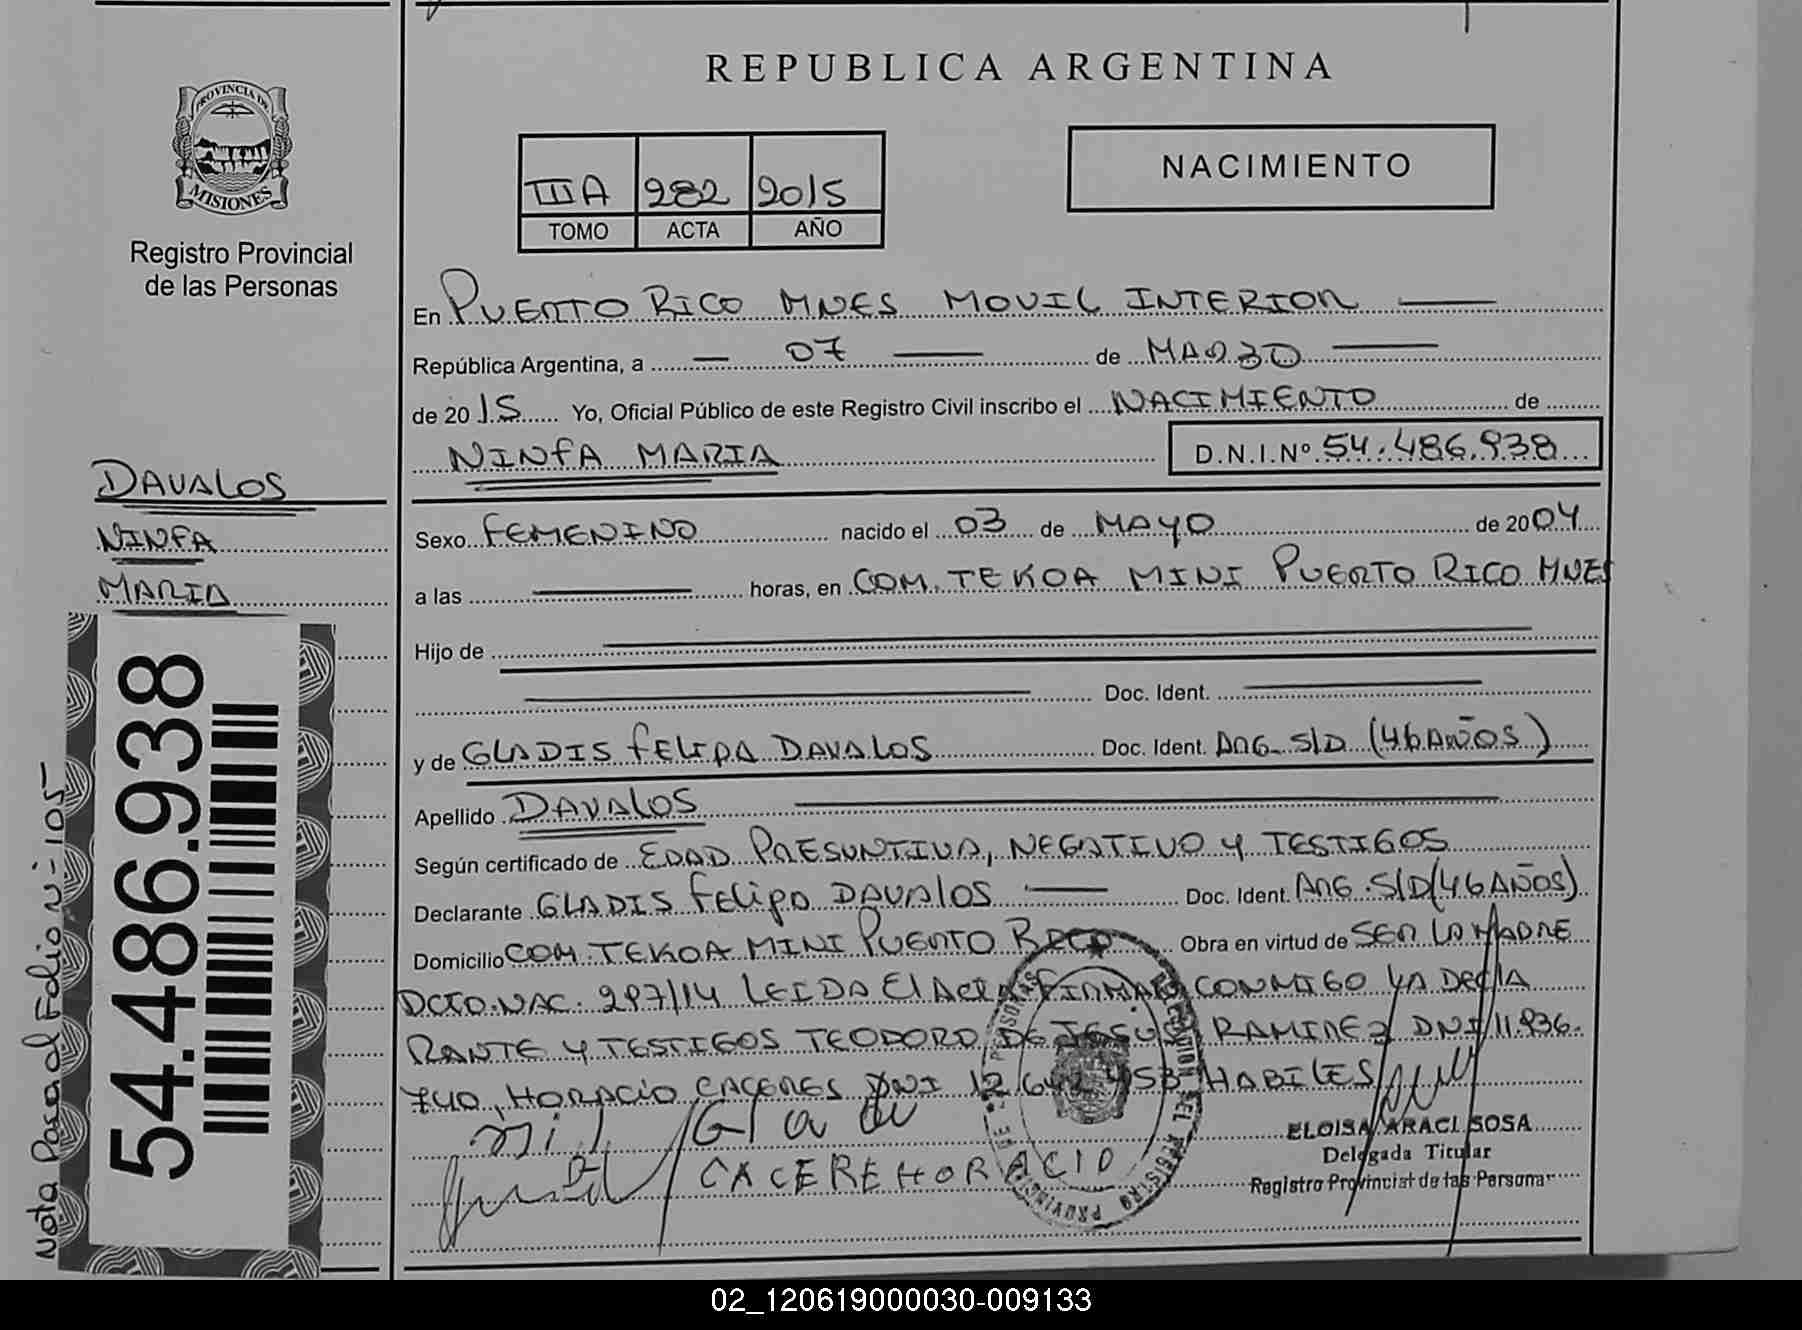 REPUBLICA ARGENTINA
PROVINCIA DE
MISIONES
Registro Provincial
de las Personas
IIIA 282 2015
TOMO ACTA AÑO
NACIMIENTO
En PUERTO RICO MNES MOVIL INTERIOR
República Argentina, a 07 de MARZO
de 2015 Yo, Oficial Público de este Registro Civil inscribo el NACIMIENTO de
NINFA MARIA D.N.I.Nº 54.486.938
DAVALOS
NINFA
MARIA
Sexo FEMENINO nacido el 03 de MAYO de 2004
a las horas, en COM. TEKOA MINI PUERTO RICO MNES
Hijo de
Doc. Ident.
y de GLADIS FELIPA DAVALOS Doc. Ident. ARG. S/D (46 AÑOS)
Apellido DAVALOS
Según certificado de EDAD PRESUNTIVA, NEGATIVO Y TESTIGOS
Declarante GLADIS FELIPA DAVALOS Doc. Ident. ARG. S/D (46 AÑOS)
Domicilio COM. TEKOA MINI PUERTO RICO Obra en virtud de SER LA MADRE
DCTO. NAC. 297/14 LEIDA EL ACTA FIRMAN CONMIGO LA DECLA
RANTE Y TESTIGOS TEODORO DE JESUS RAMIREZ DNI 11.936.
740, HORACIO CACERES DNI 12.642.453 HABILES
CACERE HORACIO
ELOISA ARACI SOSA
Delegada Titular
Registro Provincial de las Personas
54.486.938
Nota Pasa al Folio Nº 105
02_120619000030-009133